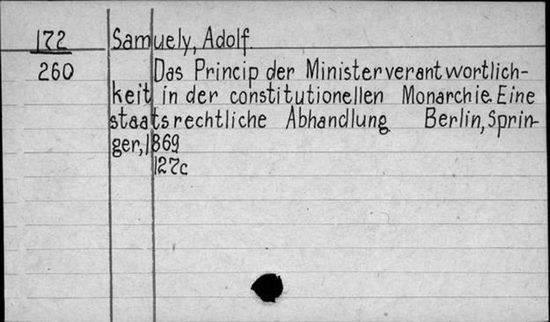 172 Samuely, Adolf.
260 Das Princip der Ministerverantwortlich-
keit in der constitutionellen Monarchie. Eine
staatsrechtliche Abhandlung. Berlin, Sprin-
ger, 1869
127c